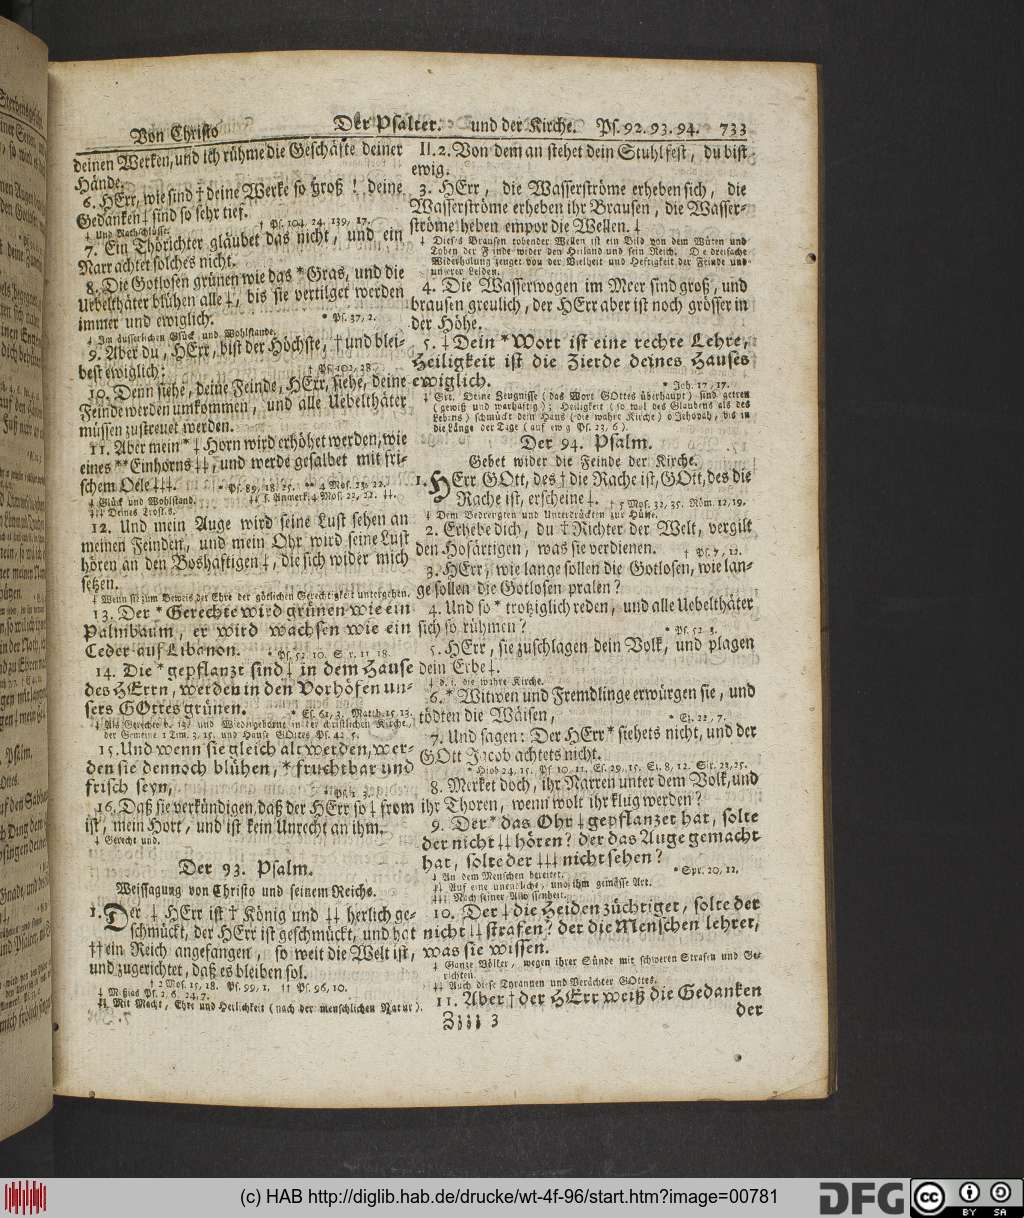 Von Christo Der Psalter. und der Kirche. Ps. 92. 93. 94. 733
deinen Werken, und ich rühme die Geschäfte deiner
Hände.
6. HErr, wie sind † deine Werke so groß! deine
Gedanken ⸸ sind so sehr tief.
⸸ Und Rathschlüsse. † Ps. 104, 24. 139, 17.
7. Ein Thörichter gläubet das nicht, und ein
Narr achtet solches nicht.
8. Die Gotlosen grünen wie das * Gras, und die
Uebelthäter blühen alle ⸸, bis sie vertilget werden
immer und ewiglich. * Ps. 37, 2.
⸸ Im äusserlichen Glück und Wohlstande.
9. Aber du, HErr, bist der Höchste, † und blei-
best ewiglich: † Ps. 102, 28.
10. Denn siehe, deine Feinde, HErr, siehe, deine
Feinde werden umkommen, und alle Uebelthäter
müssen zustreuet werden.
11. Aber mein * ⸸ Horn wird erhöhet werden, wie
eines ** Einhorns ⸸⸸, und werde gesalbet mit fri-
schem Oele ⸸⸸⸸. * Ps. 89, 18. 25. ** 4 Mos. 23, 22.
⸸ Glück und Wohlstand. ⸸⸸ s. Anmerk. 4 Mos. 23, 22. ⸸⸸.
⸸⸸⸸ Deines Trostes.
12. Und mein Auge wird seine Lust sehen an
meinen Feinden, und mein Ohr wird seine Lust
hören an den Boshaftigen ⸸, die sich wider mich
setzen.
⸸ Wenn sie zum Beweis der Ehre der götlichen Gerechtigkeit untergehen.
13. Der * Gerechte wird grünen wie ein
Palmbaum, er wird wachsen wie ein
Ceder auf Libanon. * Ps. 52, 10. Sir. 11, 18.
14. Die * gepflanzt sind ⸸ in dem Hause
des HErrn, werden in den Vorhöfen un-
sers GOttes grünen. * Es. 61, 3. Matth. 15, 13.
⸸ Als Gerechte v. 13. und Wiedergeborne in der christlichen Kirche,
der Gemeine 1 Tim. 3, 15. und Hause GOttes Ps. 42, 5.
15. Und wenn sie gleich alt werden, wer-
den sie dennoch blühen, * fruchtbar und
frisch seyn, * Ps. 1, 3.
16. Daß sie verkündigen, daß der HErr so ⸸ from
ist, mein Hort, und ist kein Unrecht an ihm.
⸸ Gerecht und.
Der 93. Psalm.
Weissagung von Christo und seinem Reichs.
1. Der ⸸ HErr ist † König und ⸸⸸ herlich ge-
schmückt, der HErr ist geschmückt, und hat
†† ein Reich angefangen, so weit die Welt ist,
und zugerichtet, daß es bleiben sol.
† 2 Mos. 15, 18. Ps. 99, 1. †† Ps. 96, 10.
⸸ Meßias Ps. 2, 6. 24, 7.
⸸⸸ Mit Macht, Ehre und Herlichkeit (nach der menschlichen Natur).
II. 2. Von dem an stehet dein Stuhl fest, du bist
ewig.
3. HErr, die Wasserströme erheben sich, die
Wasserströme erheben ihr Brausen, die Wasser-
ströme heben empor die Wellen. ⸸
⸸ Dieses Brausen tobender Wellen ist ein Bild von dem Wüten und
Toben der Feinde wider den Heiland und sein Reich. Die dreifache
Wiederholung zeuget von der Vielheit und Heftigkeit der Feinde und
unserer Leiden.
4. Die Wasserwogen im Meer sind groß, und
brausen greulich, der HErr aber ist noch grösser in
der Höhe.
5. ⸸ Dein * Wort ist eine rechte Lehre,
Heiligkeit ist die Zierde deines Hauses
ewiglich. * Joh. 17, 17.
⸸ Grt. Deine Zeugnisse (das Wort GOttes überhaupt) sind getreu
(gewiß und warhaftig); Heiligkeit (so wol des Glaubens als des
Lebens) schmückt dein Haus (die wahre Kirche) o Jehovah, bis in
die Länge der Tage (auf ewig Ps. 23, 6).
Der 94. Psalm.
Gebet wider die Feinde der Kirche.
1. HErr GOtt, des † die Rache ist, GOtt, des die
Rache ist, erscheine ⸸. † 5 Mos. 32, 35. Röm. 12, 19.
⸸ Dem Bedrengten und Unterdrückten zur Hülfe.
2. Erhebe dich, du † Richter der Welt, vergilt
den Hofärtigen, was sie verdienen. † Ps. 7, 12.
3. HErr, wie lange sollen die Gotlosen, wie lan-
ge sollen die Gotlosen pralen?
4. Und so * trotziglich reden, und alle Uebelthäter
sich so rühmen? * Ps. 52, 3.
5. HErr, sie zuschlagen dein Volk, und plagen
dein Erbe ⸸.
⸸ d. i. die wahre Kirche.
6. * Witwen und Fremdlinge erwürgen sie, und
tödten die Wäisen, * Ez. 22, 7.
7. Und sagen: Der HErr * siehets nicht, und der
GOtt Jacob achtets nicht.
* Hiob 24, 15. Ps. 10, 11. Es. 29, 15. Ez. 8, 12. Sir. 23, 25.
8. Merket doch, ihr Narren unter dem Volk, und
ihr Thoren, wenn wolt ihr klug werden?
9. Der * das Ohr ⸸ gepflanzet hat, solte
der nicht ⸸⸸ hören? der das Auge gemacht
hat, solte der ⸸⸸⸸ nicht sehen?
⸸ An dem Menschen bereitet. * Spr. 20, 12.
⸸⸸ Auf eine unendliche, und ihm gemässe Art.
⸸⸸⸸ Nach seiner Allwissenheit.
10. Der ⸸ die Heiden züchtiget, solte der
nicht ⸸⸸ strafen? der die Menschen lehret,
was sie wissen.
⸸ Ganze Völker, wegen ihrer Sünde mit schweren Strafen und Ge-
richten.
⸸⸸ Auch diese Tyrannen und Verächter GOttes.
11. Aber † der HErr weiß die Gedanken
der
Zzzz 3
(c) HAB http://diglib.hab.de/drucke/wt-4f-96/start.htm?image=00781
DFG
cc BY SA